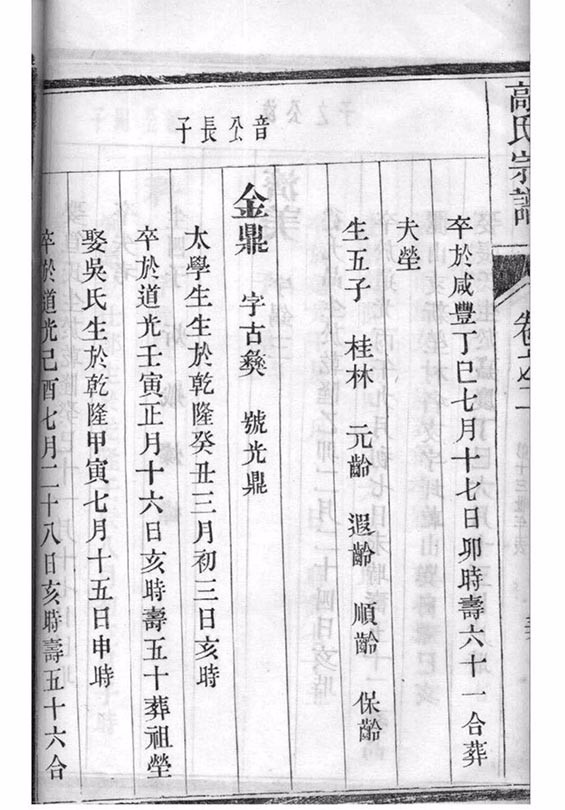 高氏宗譜
卷之二
卒於咸豐丁巳七月十七日卯時壽六十一合葬
夫塋
生五子 桂林 元齡 遐齡 順齡 保齡
音公長子
金鼎 字古彝 號光鼎
太學生生於乾隆癸丑三月初三日亥時
卒於道光壬寅正月十六日亥時壽五十葬祖塋
娶吳氏生於乾隆甲寅七月十五日申時
卒於道光己酉七月二十八日亥時壽五十六合